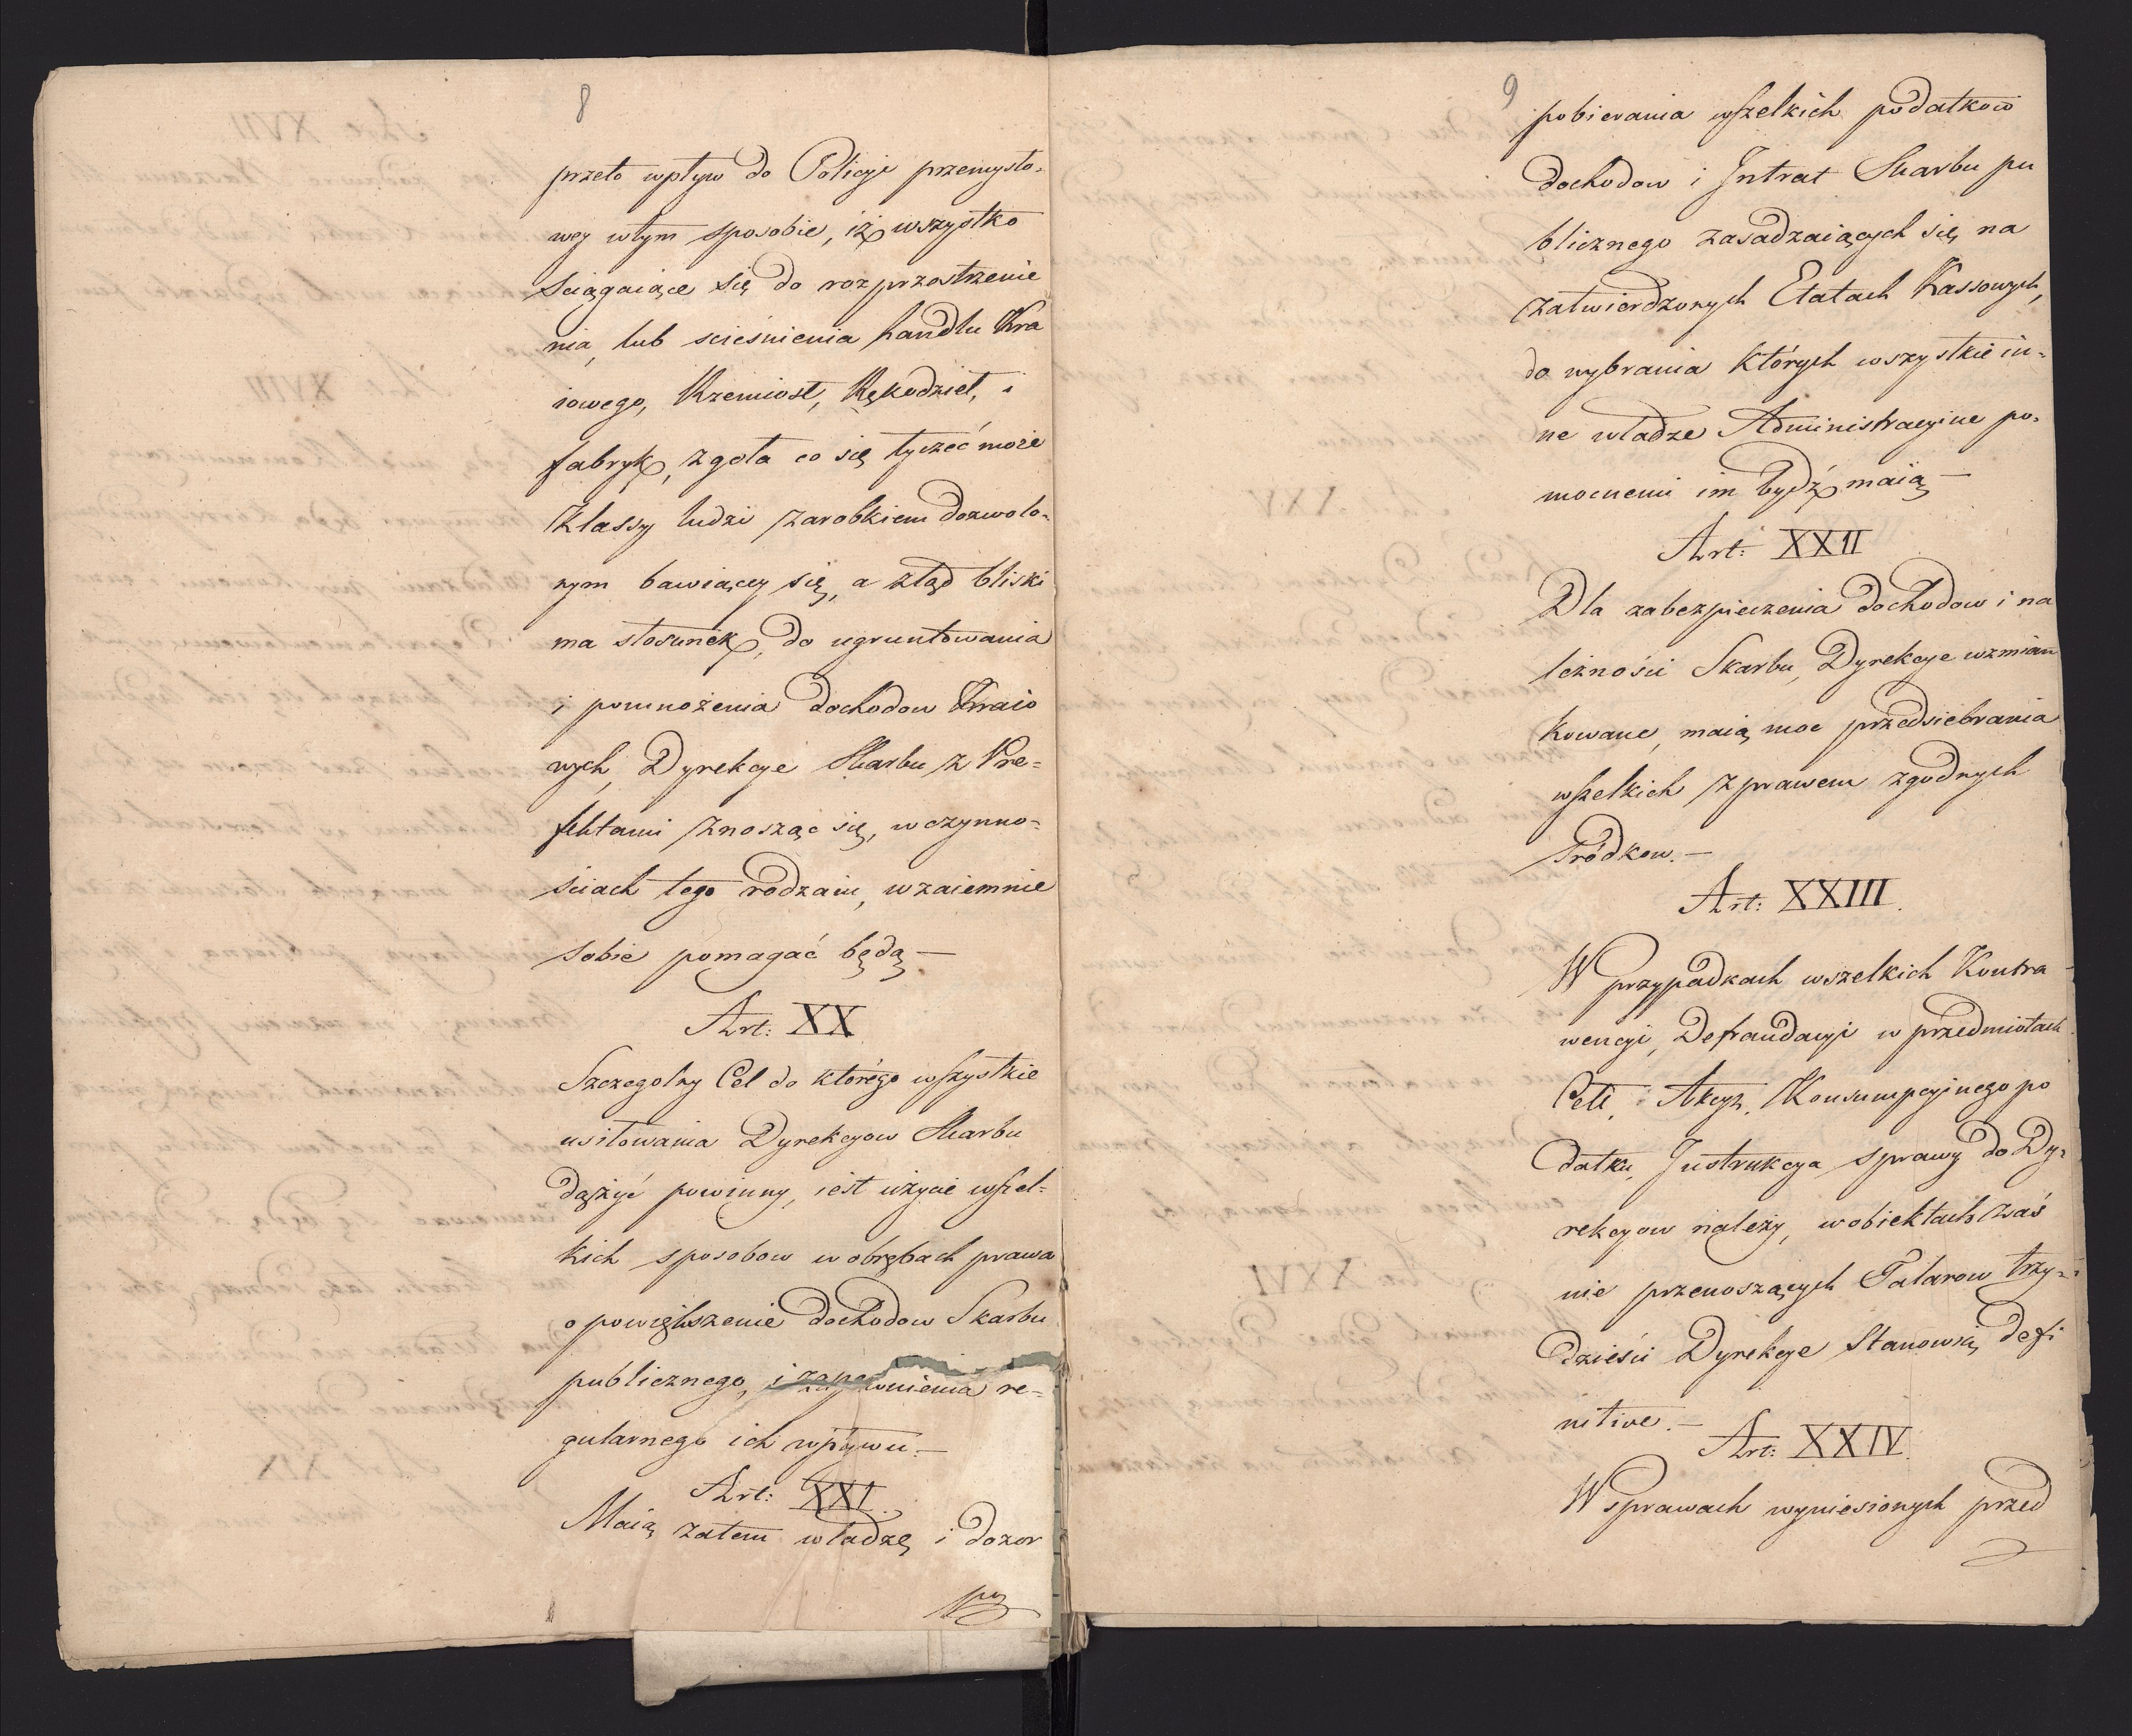 8
przeto wpływ do Policyi przemysło-
wey w tym sposobie, iż wszystko
sciągaiące się do rozprzostrzenie
nia, lub scieśnienia handlu Kra
iowego, Rzemiosł, Rękodzieł, i
fabryk, zgoła co się tyczeć może
Klassy ludzi zarobkiem dozwolo-
nym bawiącey się, a ztąd bliski
ma stosunek, do ugruntowania
i pomnożenia dochodow Kraio
wych, Dyrekcye Skarbu z Pre=
fektami znosząc się, w czynno=
sciach tego rodzaiu, wzaiemnie
sobie pomagać będą —
Art: XX
Szczegolny Cel do którego wszystkie
usiłowania Dyrekcyow Skarbu
dążyć powinny, iest użycie wszel=
kich sposobow w obrębach prawa
o powiększenie dochodow Skarbu
publicznego, i zapewnienia re=
gularnego ich wpływu. —
Art: XXI.
Maią zatem władzę i dozor
po
9
pobierania wszelkich podatkow
dochodow i Intrat Skarbu pu
blicznego zasadzaiących się na
zatwierdzonych Etatach Kassowych,
do wybrania których wszystkie in-
ne władze Administracyine po-
mocnemi im bydź maią —
Art: XXII
Dla zabezpieczenia dochodow i na
leżności Skarbu, Dyrekcye wzmian
kowane, maią moc przedsiebrania
wszelkich z prawem zgodnych
śródkow. —
Art: XXIII.
W przypadkach wszelkich Kontra
wencyi, Defraudacyi w przedmiotach
Ceł, Akcyz, Konsumpcyjnego po
datku, Instrukcya sprawy do Dy-
rekcyow należy, w obiektach zaś
nie przenoszących Talarow trzy-
dzieści Dyrekcye stanowią defi
nitive. —
Art: XXIV.
W sprawach wyniesionych przed